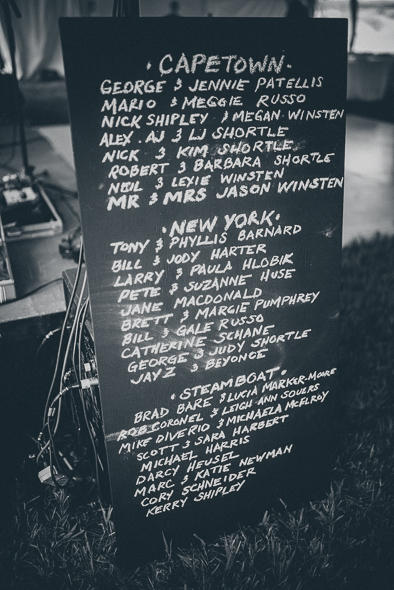 · CAPETOWN ·
GEORGE & JENNIE PATELLIS
MARIO & MEGGIE RUSSO
NICK SHIPLEY & MEGAN WINSTEN
ALEX. AJ & LJ SHORTLE
NICK & KIM SHORTLE
ROBERT & BARBARA SHORTLE
NEIL & LEXIE WINSTEN
MR & MRS JASON WINSTEN
· NEW YORK ·
TONY & PHYLLIS BARNARD
BILL & JODY HARTER
LARRY & PAULA HLOBIK
PETE & SUZANNE HUSE
JANE MACDONALD
BRETT & MARGIE PUMPHREY
BILL & GALE RUSSO
CATHERINE SCHANE
GEORGE & JUDY SHORTLE
JAYZ & BEYONCE
· STEAMBOAT ·
BRAD BARE & LUCIA MARKER-MOORE
ROB CORONEL & LEIGH ANN SOUERS
MIKE DIVERIO & MICHAELA MCELROY
SCOTT & SARA HARBERT
MICHAEL HARRIS
DARCY HEUSEL
MARC & KATIE NEWMAN
CORY SCHNEIDER
KERRY SHIPLEY